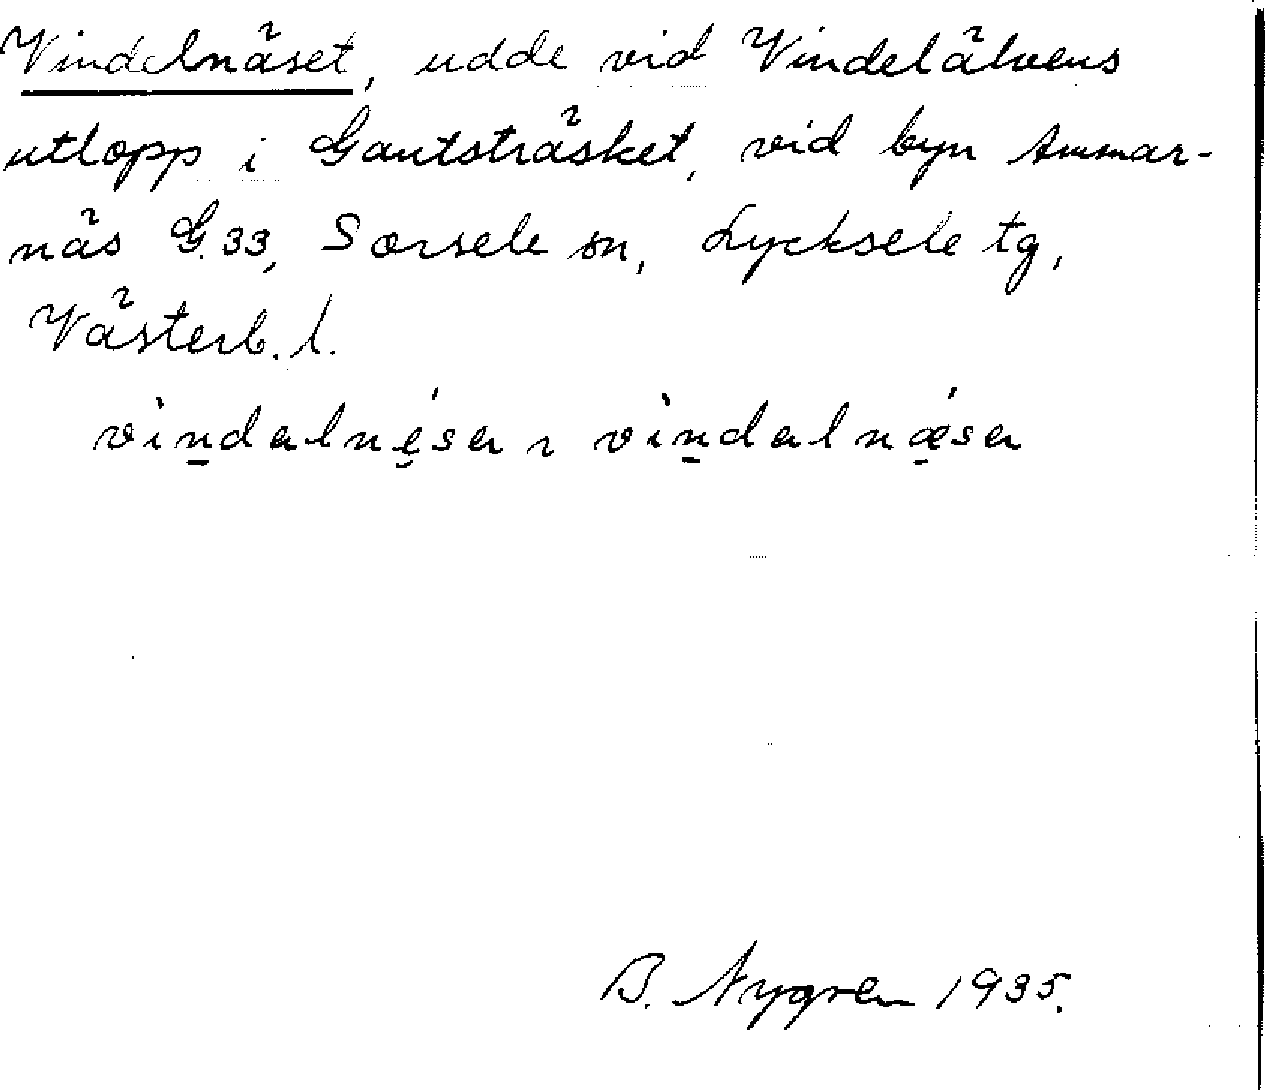 Vindelnäset, udde vid Vindelälvens
utlopp i Gautsträsket, vid byn Ammar-
näs G.33, Sorsele sn, Lycksele tg,
Västerb. l.
vìndəlnésə ~ vìndəlnǽsə
B. Nygren 1935.